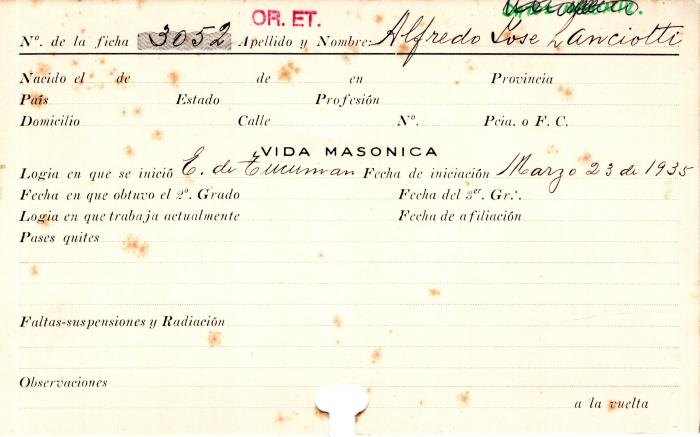 OR. ET.
Nº. de la ficha 3052 Apellido y Nombre: Alfredo Jose Lanciotti
Nacido el de de en Provincia
País Estado Profesión
Domicilio Calle Nº. Pcia. o F. C.
VIDA MASONICA
Logia en que se inició E. de Tucuman Fecha de iniciación Marzo 23 de 1935
Fecha en que obtuvo el 2º. Grado Fecha del 3er. Gr∴.
Logia en que trabaja actualmente Fecha de afiliación
Pases quites
Faltas-suspensiones y Radiación
Observaciones
a la vuelta